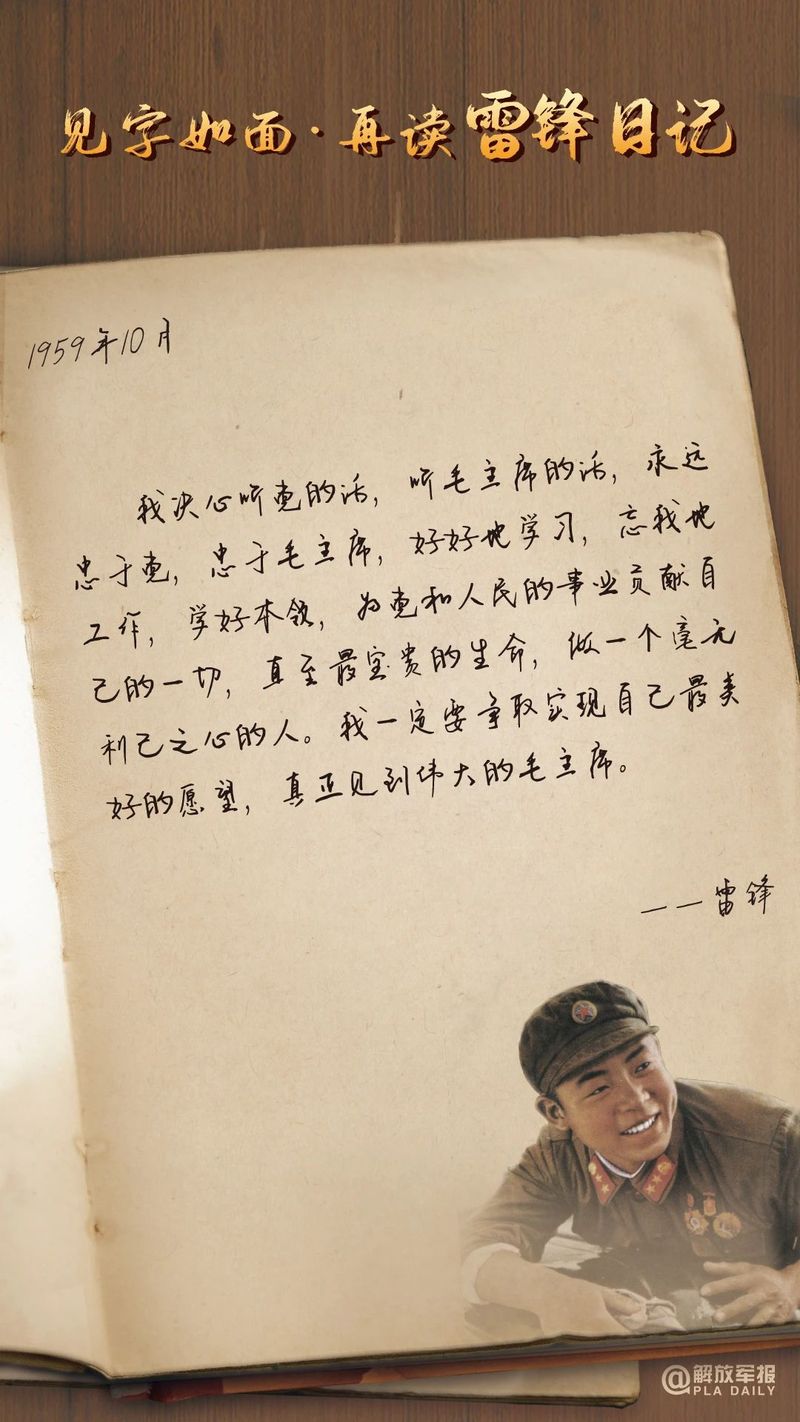 见字如面·再读雷锋日记
1959年10月
我决心听党的话，听毛主席的话，永远
忠于党，忠于毛主席，好好地学习，忘我地
工作，学好本领，为党和人民的事业贡献自
己的一切，直至最宝贵的生命，做一个毫无
利己之心的人。我一定要争取实现自己最美
好的愿望，真正见到伟大的毛主席。
——雷锋
@解放军报
PLA DAILY